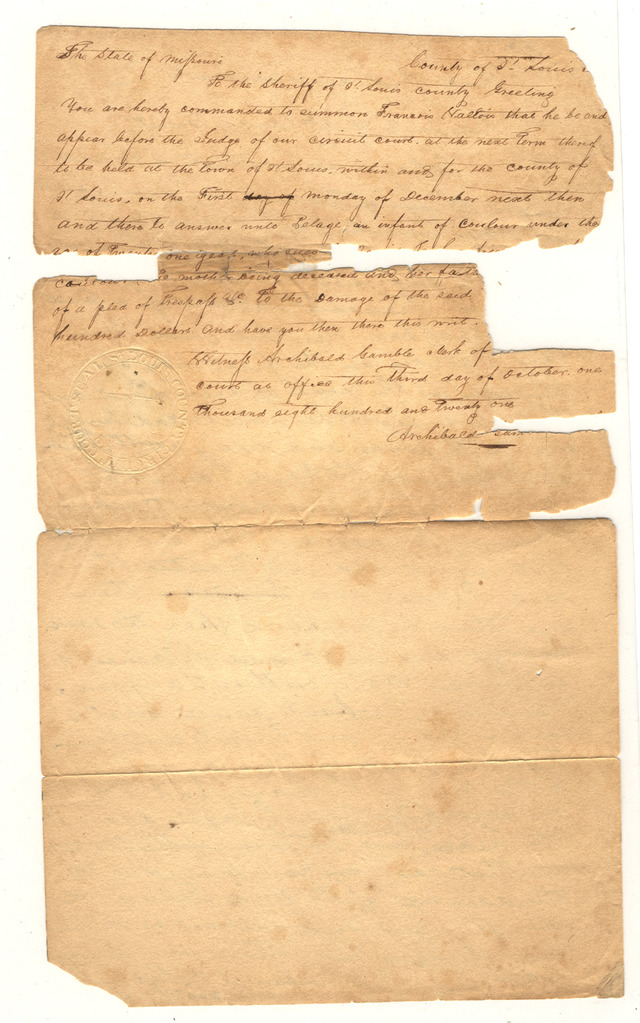 The State of Missouri County of St. Louis
To the Sheriff of St Louis county Greeting
You are hereby commanded to summon Francois Valois that he be and
appear before the Judge of our circuit court. at the next Term thereof
to be held at the Town of St Louis. within and for the county of
St Louis. on the First day of Monday of December next then
and there to answer unto Pelagie, an infant of Coulour under the
age of Twenty one years, who sues
mother being deceased and her fath
of a plea of Trespass &c. To the Damage of the said
hundred Dollars. And have you then there this writ.
Witness Archibald Gamble clerk of
court at office this Third day of October. one
thousand eight hundred and twenty one
Archibald Gam